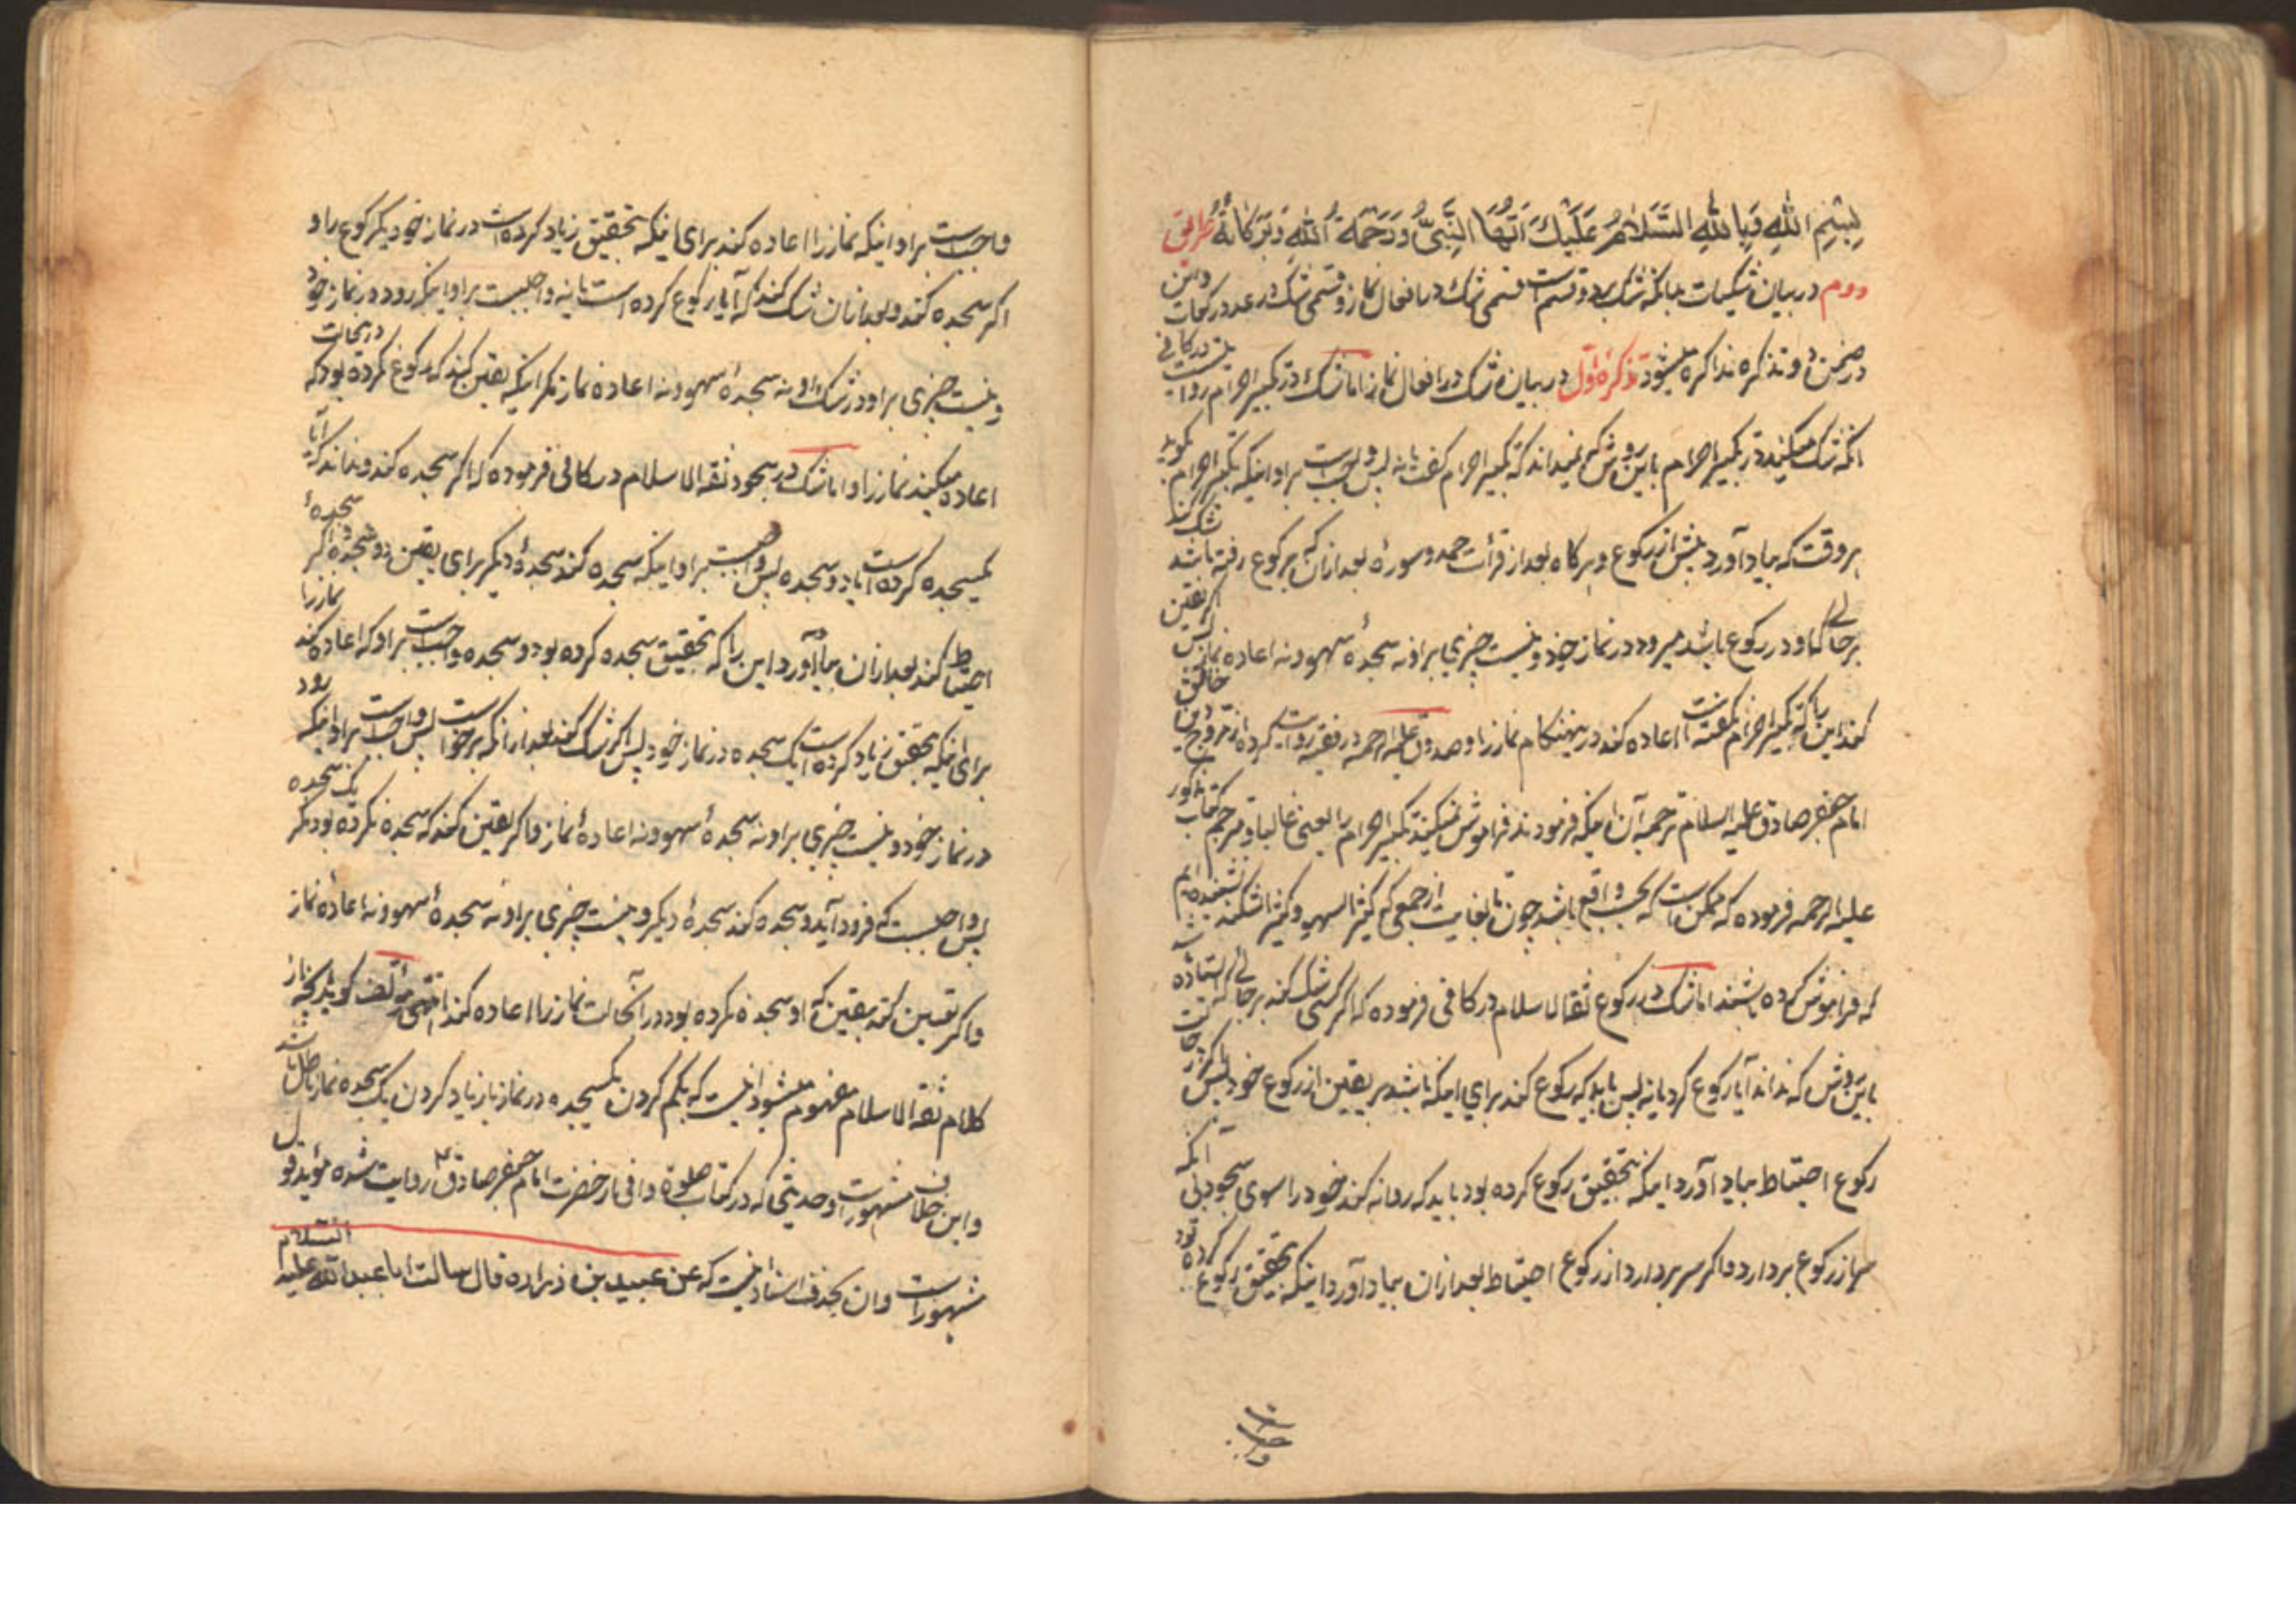 بِسْمِ اللهِ وَبِاللهِ السَّلَامُ عَلَيْكَ اَيُّهَا النَّبِيُّ وَرَحْمَةُ اللهِ وَبَرَكَاتُهُ
دوم در بیان شکیات بدانکه شک بر دو قسم است قسمی شک در افعال نماز و قسمی شک در عدد رکعات و این
در ضمن دو تذکره مذاکره میشود تذکرهٔ اول در بیان شک در افعال نماز اما شک در تکبیر احرام در کافی
انکه شک میکند در تکبیر احرام باین روش که نمیداند که تکبیر احرام گفت یا نه پس واجبست بر او اینکه تکبیر احرام بگوید
هر وقت که بیاد آورد پیش از رکوع و هرگاه بعد از قرأت حمد و سوره بعد ازان که برکوع رفته باشد شک کند
بر حالی که او در رکوع باشد میرود در نماز خود و نیست چیزی بر او نه سجدهٔ سهو و نه اعاده نماز پس اگر یقین
کند این را که تکبیر احرام نگفته است اعاده کند در ینهنکام نماز را و صدوق علیه الرحمه در فقیه روایت کرده از
امام جعفر صادق علیه السلام ترجمهٔ آن اینکه فرمودند فراموش نمیکند تکبیر احرام را یعنی غالبا و مترجم کتاب مذکور
علیه الرحمه فرموده که ممکن است که بحسب واقع باشد چون تا بغایت از جمعی که کثیر السهو و کثیر الشکند نشنیده ایم
که فراموش کرده باشند اما شک در رکوع ثقة الاسلام در کافی فرموده که اگر کسی شک کند بر حالی که ایستاده است
باین روش که نداند آیا رکوع کرد یا نه پس باید که رکوع کند برای اینکه باشد بر یقین از رکوع خود پس اگر در حالت
رکوع احتیاط بیاد آورد اینکه بتحقیق رکوع کرده بود باید که روانه کند خود را سوی سجود بی آنکه
سر از رکوع بردارد و اگر سر بردارد از رکوع احتیاط بعد ازان بیاد آورد اینکه بتحقیق رکوع کرده بود
واجبست
واجبست بر او اینکه نماز را اعاده کند برای اینکه بتحقیق زیاد کرده است در نماز خود یک رکوع را و
اگر سجده کند و بعد ازان شک کند که آیا رکوع کرده است یا نه واجبست بر او اینکه رود در نماز خود
و نیست چیزی بر او در شک او نه سجدهٔ سهو و نه اعاده نماز مگر اینکه یقین کند که رکوع نکرده بود که در ینحالت
اعاده میکند نماز را و اما شک در سجود ثقة الاسلام در کافی فرموده که اگر سجده کند و نداند که آیا
یکسجده کرده است یا دو سجده پس واجبست بر او اینکه سجده کند سجدهٔ دیگر برای یقین دو سجده و اگر سجدهٔ
احتیاط کند بعد ازان بیاد آورد این را که بتحقیق سجده کرده بود دو سجده واجبست بر او که اعاده کند نماز را
برای اینکه بتحقیق زیاد کرده است یک سجده در نماز خود پس اگر شک کند بعد ازانکه برخواست پس واجبست بر او اینکه رود
در نماز خود و نیست چیزی بر او نه سجدهٔ سهو و نه اعادهٔ نماز و اگر یقین کند که سجده نکرده بود مگر یک سجده
پس واجبست که فرود آید و سجده کند سجدهٔ دیگر و نیست چیزی بر او نه سجدهٔ سهو و نه اعادهٔ نماز
و اگر یقین کند یقین که او سجده نکرده بود در آنحالت نماز را اعاده کند انتهی مؤلف گوید آنچه از
کلام ثقة الاسلام مفهوم میشود اینست که بکم کردن یکسجده در نماز یا زیاد کردن یک سجده نماز باطل باشد
و این خلاف مشهورست و حدیثی که در کتاب صلوة وافی از حضرت امام جعفر صادق ع روایت شده مؤید قول
مشهور است و ان بحذف اسناد اینست که عن عبید بن زراره قال سالت ابا عبد الله علیه السلام